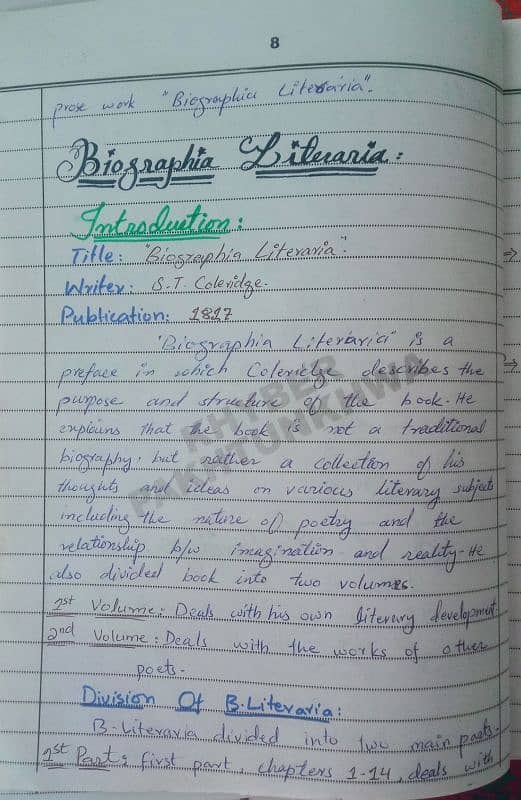 8
prose work "Biographia Literaria".
Biographia Literaria:
Introduction:
Title: "Biographia Literaria".
Writer: S.T. Coleridge.
Publication: 1817
"Biographia Literaria" is a
preface in which Coleridge describes the
purpose and structure of the book. He
explains that the book is not a traditional
biography, but rather a collection of his
thoughts and ideas on various literary subject
including the nature of poetry and the
relationship b/w imagination and reality. He
also divided book into two volumes.
1st Volume: Deals with his own literary development
2nd Volume: Deals with the works of other
poets.
Division Of B.Literaria:
B-Literaria divided into two main parts.
1st Part: first part, chapters 1-14, deals with
KHYBER
PAKHTUNKHWA